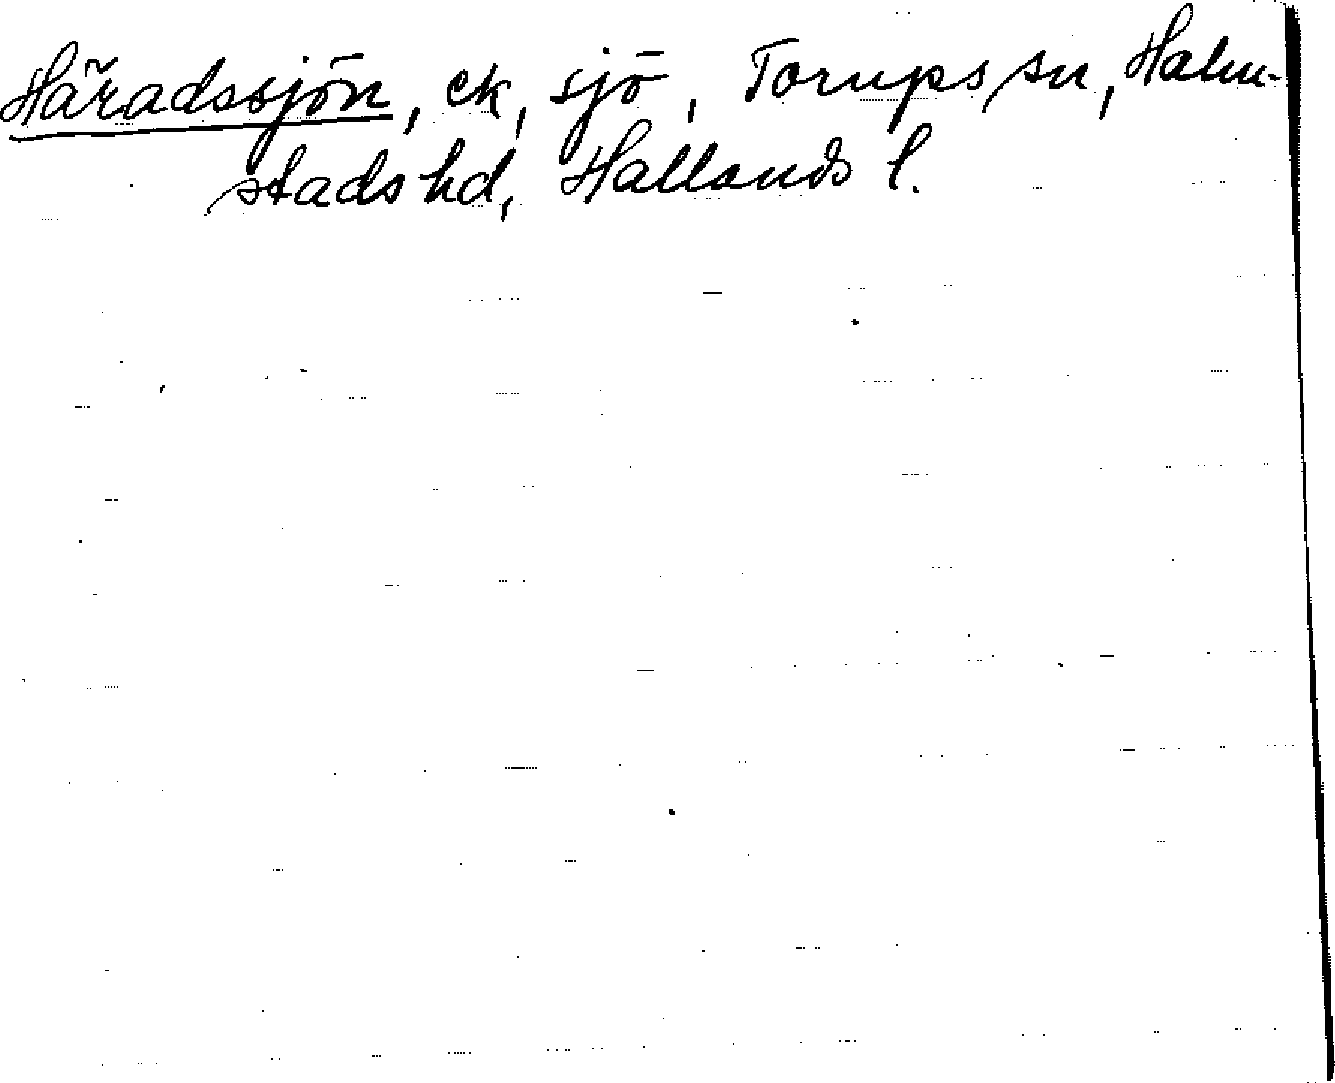 Häradssjön, ek, sjö, Torups sn, Halm-
stads hd, Hallands l.